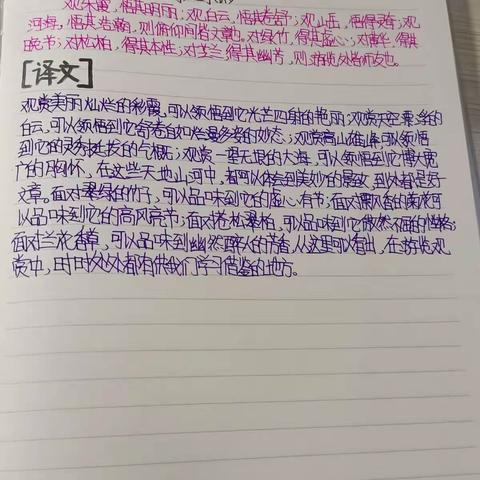 观朱霞，悟其明丽；观白云，悟其卷舒；观山岳，悟得灵奇；观
河海，悟其浩瀚，则俯仰间皆文章也。对绿竹，得其虚心；对黄华，得其
晚节；对松柏，得其本性；对芝兰得其幽芳，则游览处皆师友也。
[译文]
观赏美丽灿烂的彩霞，可以领悟到它光芒四射的艳丽；观赏天空飘络的
白云，可以领悟到它卷卷自如烂漫多姿的妙态；观赏高山雄峰可以领悟
到它的灵秀挺拔的气概；观赏一望无垠的大海，可以领悟到它博大宽
广的胸怀，在这些天地山河中，都可以体会到美妙的景致，到处都是好
文章。面对翠绿的竹子，可以品味到它的虚心有节；面对飘香的菊花可
以品味到它的高风亮节；面对苍松翠柏，可以品味到它傲然不屈的性格；
面对兰花香草，可以品味到幽然醉人的芳香，从这里可以看出，在游览观
赏中，时时处处都有供我们学习借鉴的地方。